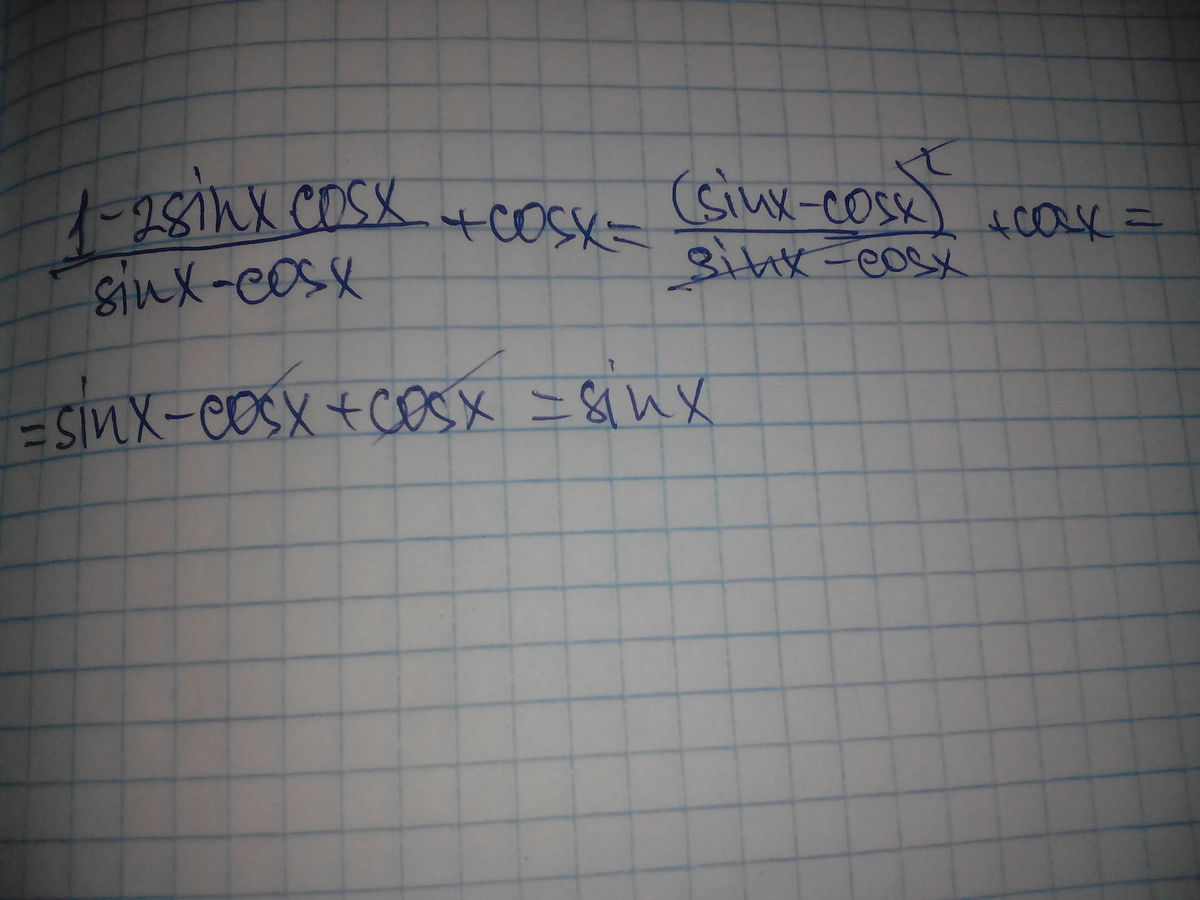 (1-2sinx cosx)/(sinx-cosx) +cosx= (sinx-cosx)²/(sinx-cosx) +cosx=
=sinx-cosx+cosx =sinx